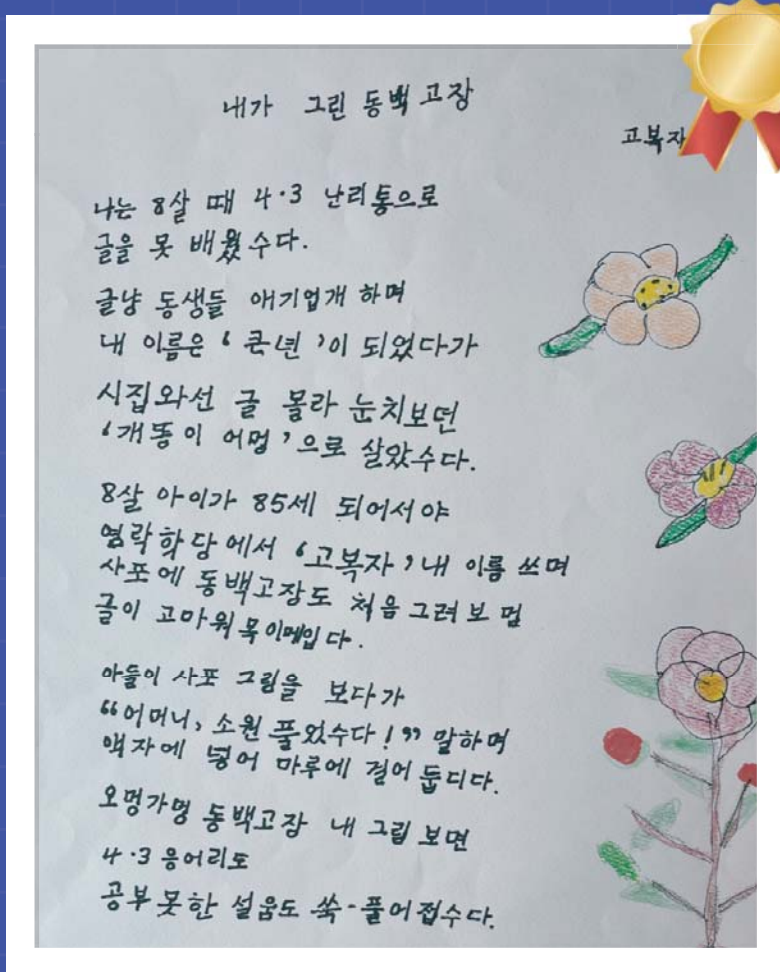 내가 그린 동백 고장
고복자
나는 8살 때 4·3 난리통으로
글을 못 배웠수다.
글냥 동생들 애기업개 하며
내 이름은 '큰년'이 되었다가
시집와선 글 몰라 눈치보던
'개똥이 어멍'으로 살았수다.
8살 아이가 85세 되어서야
영락학당에서 '고복자' 내 이름 쓰며
사포에 동백고장도 처음 그려보멍
글이 고마워 목이메입다.
아들이 사포 그림을 보다가
"어머니, 소원 풀었수다!" 말하며
액자에 넣어 마루에 걸어 둡디다.
오멍가멍 동백고장 내 그림 보면
4·3 응어리도
공부못한 설움도 쑥-풀어졉수다.